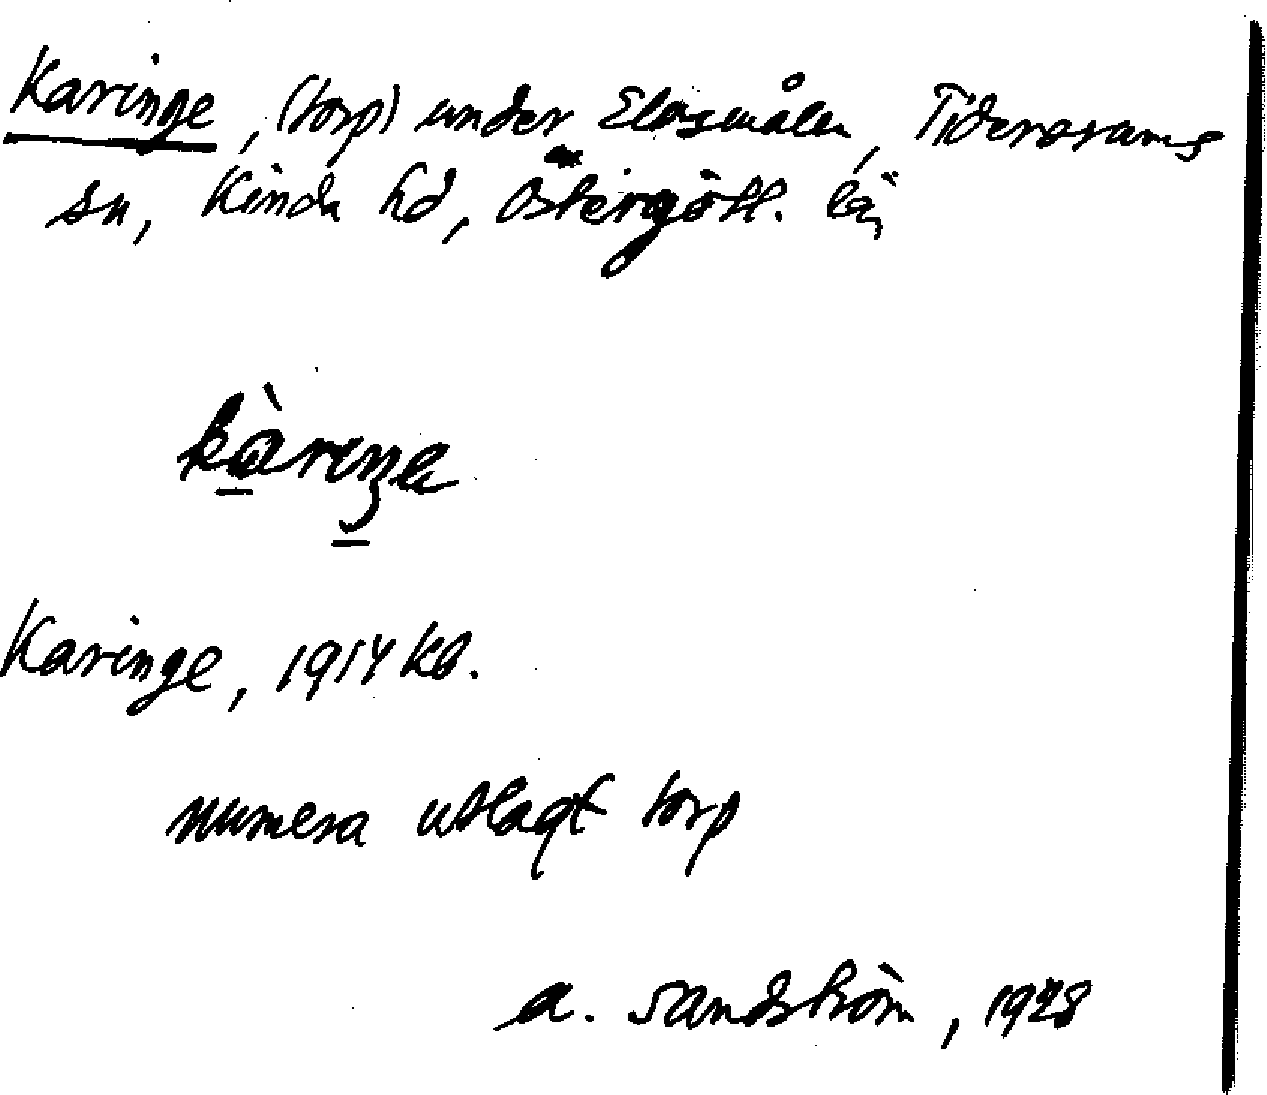 Karinge, (torp) under Elåsmålen, Tidersrums
sn, Kinda hd, Östergötl. län
kàriŋe
Karinge, 1914 kb.
numera utlagt torp
A. Sandström, 1928